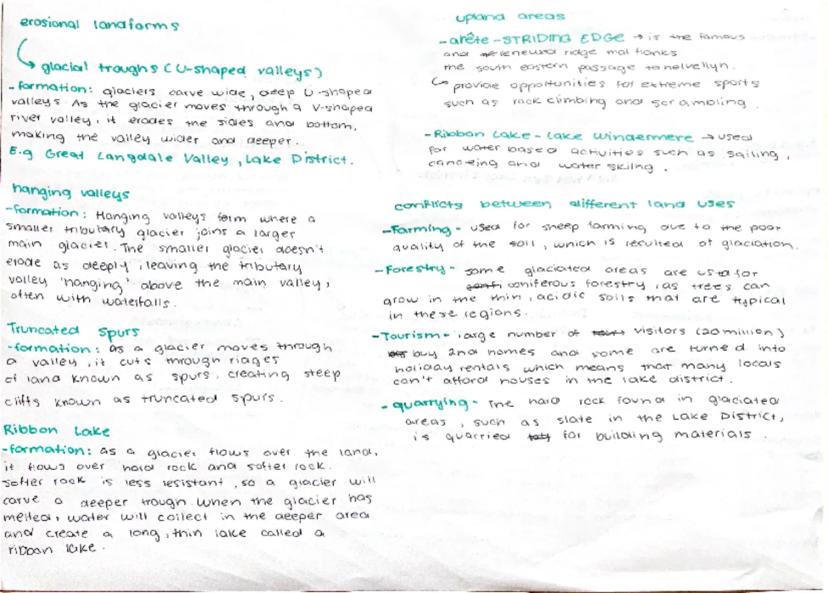 erosional landforms
glacial troughs (U-shaped valleys)
-formation: glaciers carve wide, deep U-shaped
valleys. As the glacier moves through a V-shaped
river valley, it erodes the sides and bottom,
making the valley wider and deeper.
E.g Great Langdale Valley, Lake District.
hanging valleys
-formation: Hanging valleys form where a
smaller tributary glacier joins a larger
main glacier. The smaller glacier doesn't
erode as deeply, leaving the tributary
valley 'hanging' above the main valley,
often with waterfalls.
Truncated spurs
-formation: as a glacier moves through
a valley, it cuts through ridges
of land known as spurs, creating steep
cliffs known as truncated spurs.
Ribbon Lake
-formation: as a glacier flows over the land,
it flows over hard rock and softer rock.
Softer rock is less resistant, so a glacier will
carve a deeper trough. When the glacier has
melted, water will collect in the deeper area
and create a long, thin lake called a
ribbon lake.
upland areas
-arête - STRIDING EDGE → is the famous
and ridge that flanks
the south eastern passage to helvellyn.
↳ provide opportunities for extreme sports
such as rock climbing and scrambling.
-Ribbon Lake - Lake Windermere → used
for water based activities such as sailing,
canoeing and water skiing.
conflicts between different land uses
-Farming - used for sheep farming due to the poor
quality of the soil, which is result of glaciation.
-Forestry - some glaciated areas are used for
coniferous forestry, as trees can
grow in the thin, acidic soils that are typical
in these regions.
-Tourism - large number of visitors (20 million)
buy 2nd homes and some are turned into
holiday rentals which means that many locals
can't afford houses in the lake district.
- quarrying - The hard rock found in glaciated
areas, such as slate in the Lake District,
is quarried for building materials.